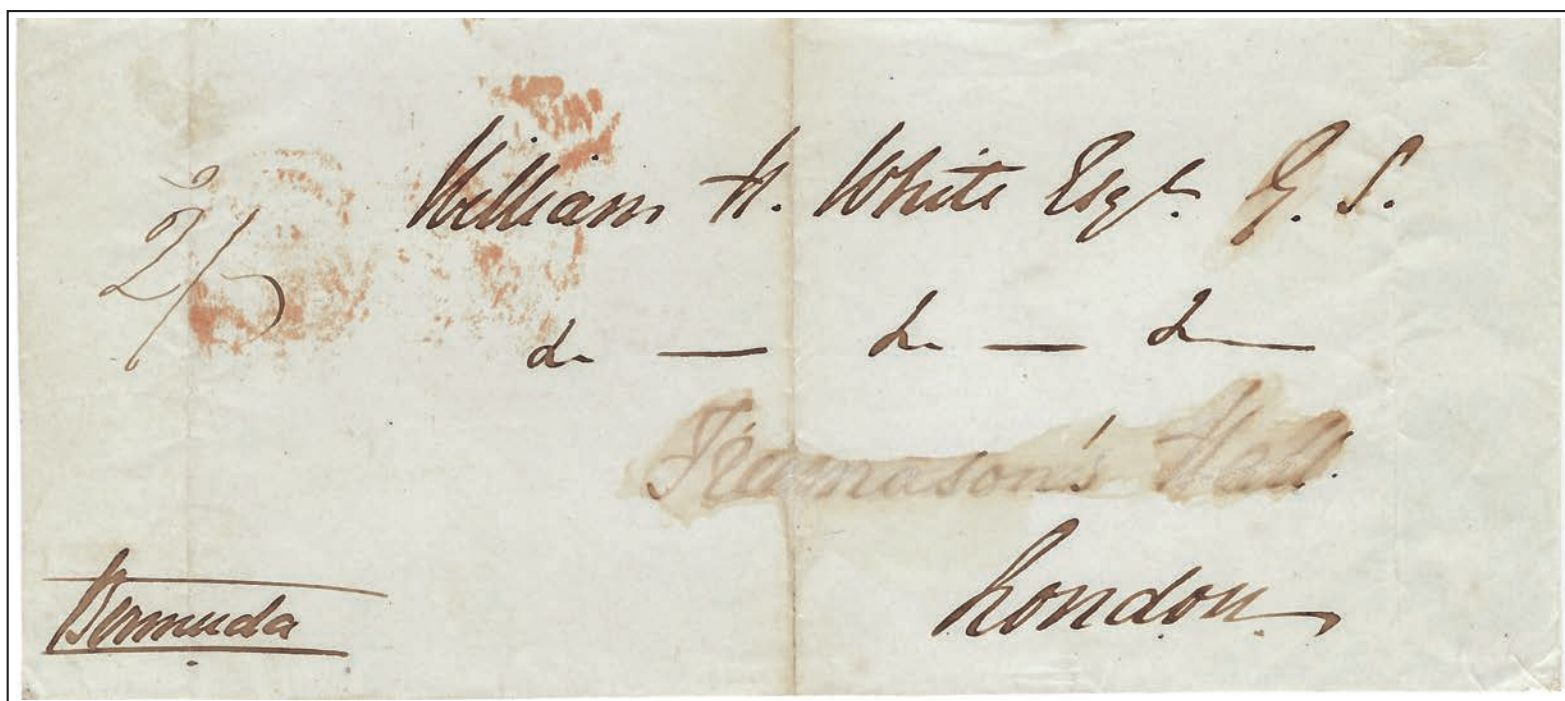 William H. White Esqr. G. S.
&c — &c — &c
Freemason's Hall.
London
Bermuda
2/